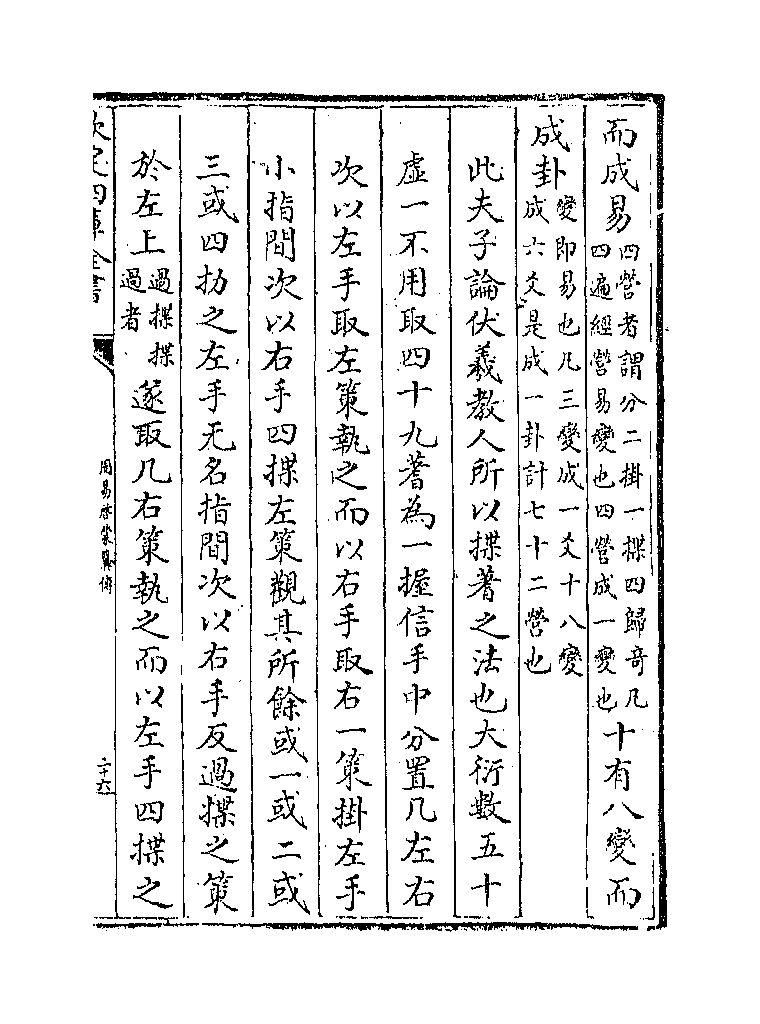 而成易四營者謂分二掛一揲四歸奇凡四遍經營易變也四營成一變也十有八變而
成卦變即易也凡三變成一爻十八變成六爻是成一卦計七十二營也
此夫子論伏羲教人所以揲蓍之法也大衍數五十
虛一不用取四十九蓍為一握信手中分置几左右
次以左手取左策執之而以右手取右一策掛左手
小指間次以右手四揲左策觀其所餘或一或二或
三或四扐之左手无名指間次以右手反過揲之策
於左上過揲揲過者遂取几右策執之而以左手四揲之
欽定四庫全書
周易啓蒙翼傳
二十六